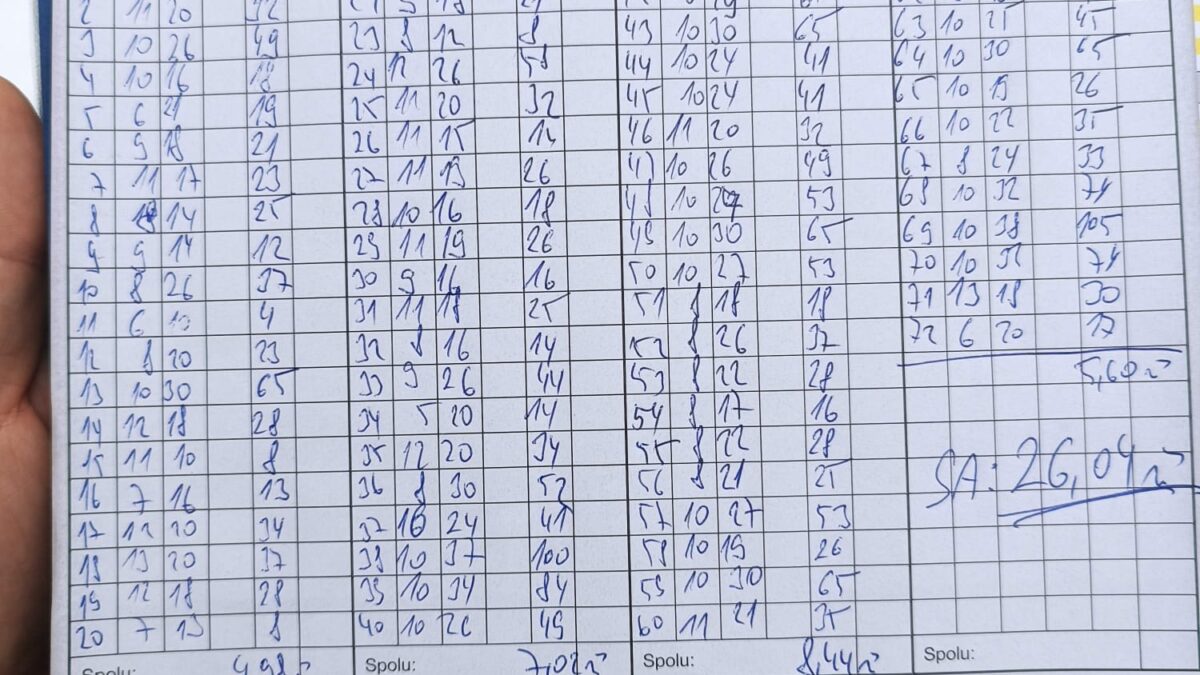 2 11 20 32
3 10 26 49
4 10 16 18
5 6 21 19
6 9 18 21
7 11 17 23
8 14 25
9 9 14 12
10 8 26 37
11 6 10 4
12 8 20 23
13 10 30 65
14 12 18 28
15 11 10 8
16 7 16 13
17 12 20 34
18 13 20 37
19 12 18 28
20 7 13 8
Spolu: 4,98
23 8 12 8
24 12 26 58
25 11 20 32
26 11 15
27 11 19 26
28 10 16 18
29 11 19 26
30 9 16 16
31 11 18 25
32 8 16 14
33 9 26 44
34 5 20 14
35 12 20 34
36 8 30 52
37 10 24 41
38 10 37 100
39 10 34 84
40 10 26 49
Spolu: 7,02
43 10 30 65
44 10 24 41
45 10 24 41
46 11 20 32
47 10 26 49
48 10 27 53
49 10 30 65
50 10 27 53
51 8 18 18
52 8 26 37
53 8 22 28
54 8 17 16
55 8 22 28
56 8 21 25
57 10 27 53
58 10 19 26
59 10 30 65
60 11 21 35
Spolu: 8,44
63 10 25 45
64 10 30 65
65 10 19 26
66 10 22 35
67 8 24 33
68 10 32 74
69 10 38 105
70 10 32 74
71 13 18 30
72 6 20 17
5,60
SA: 26,04
Spolu: